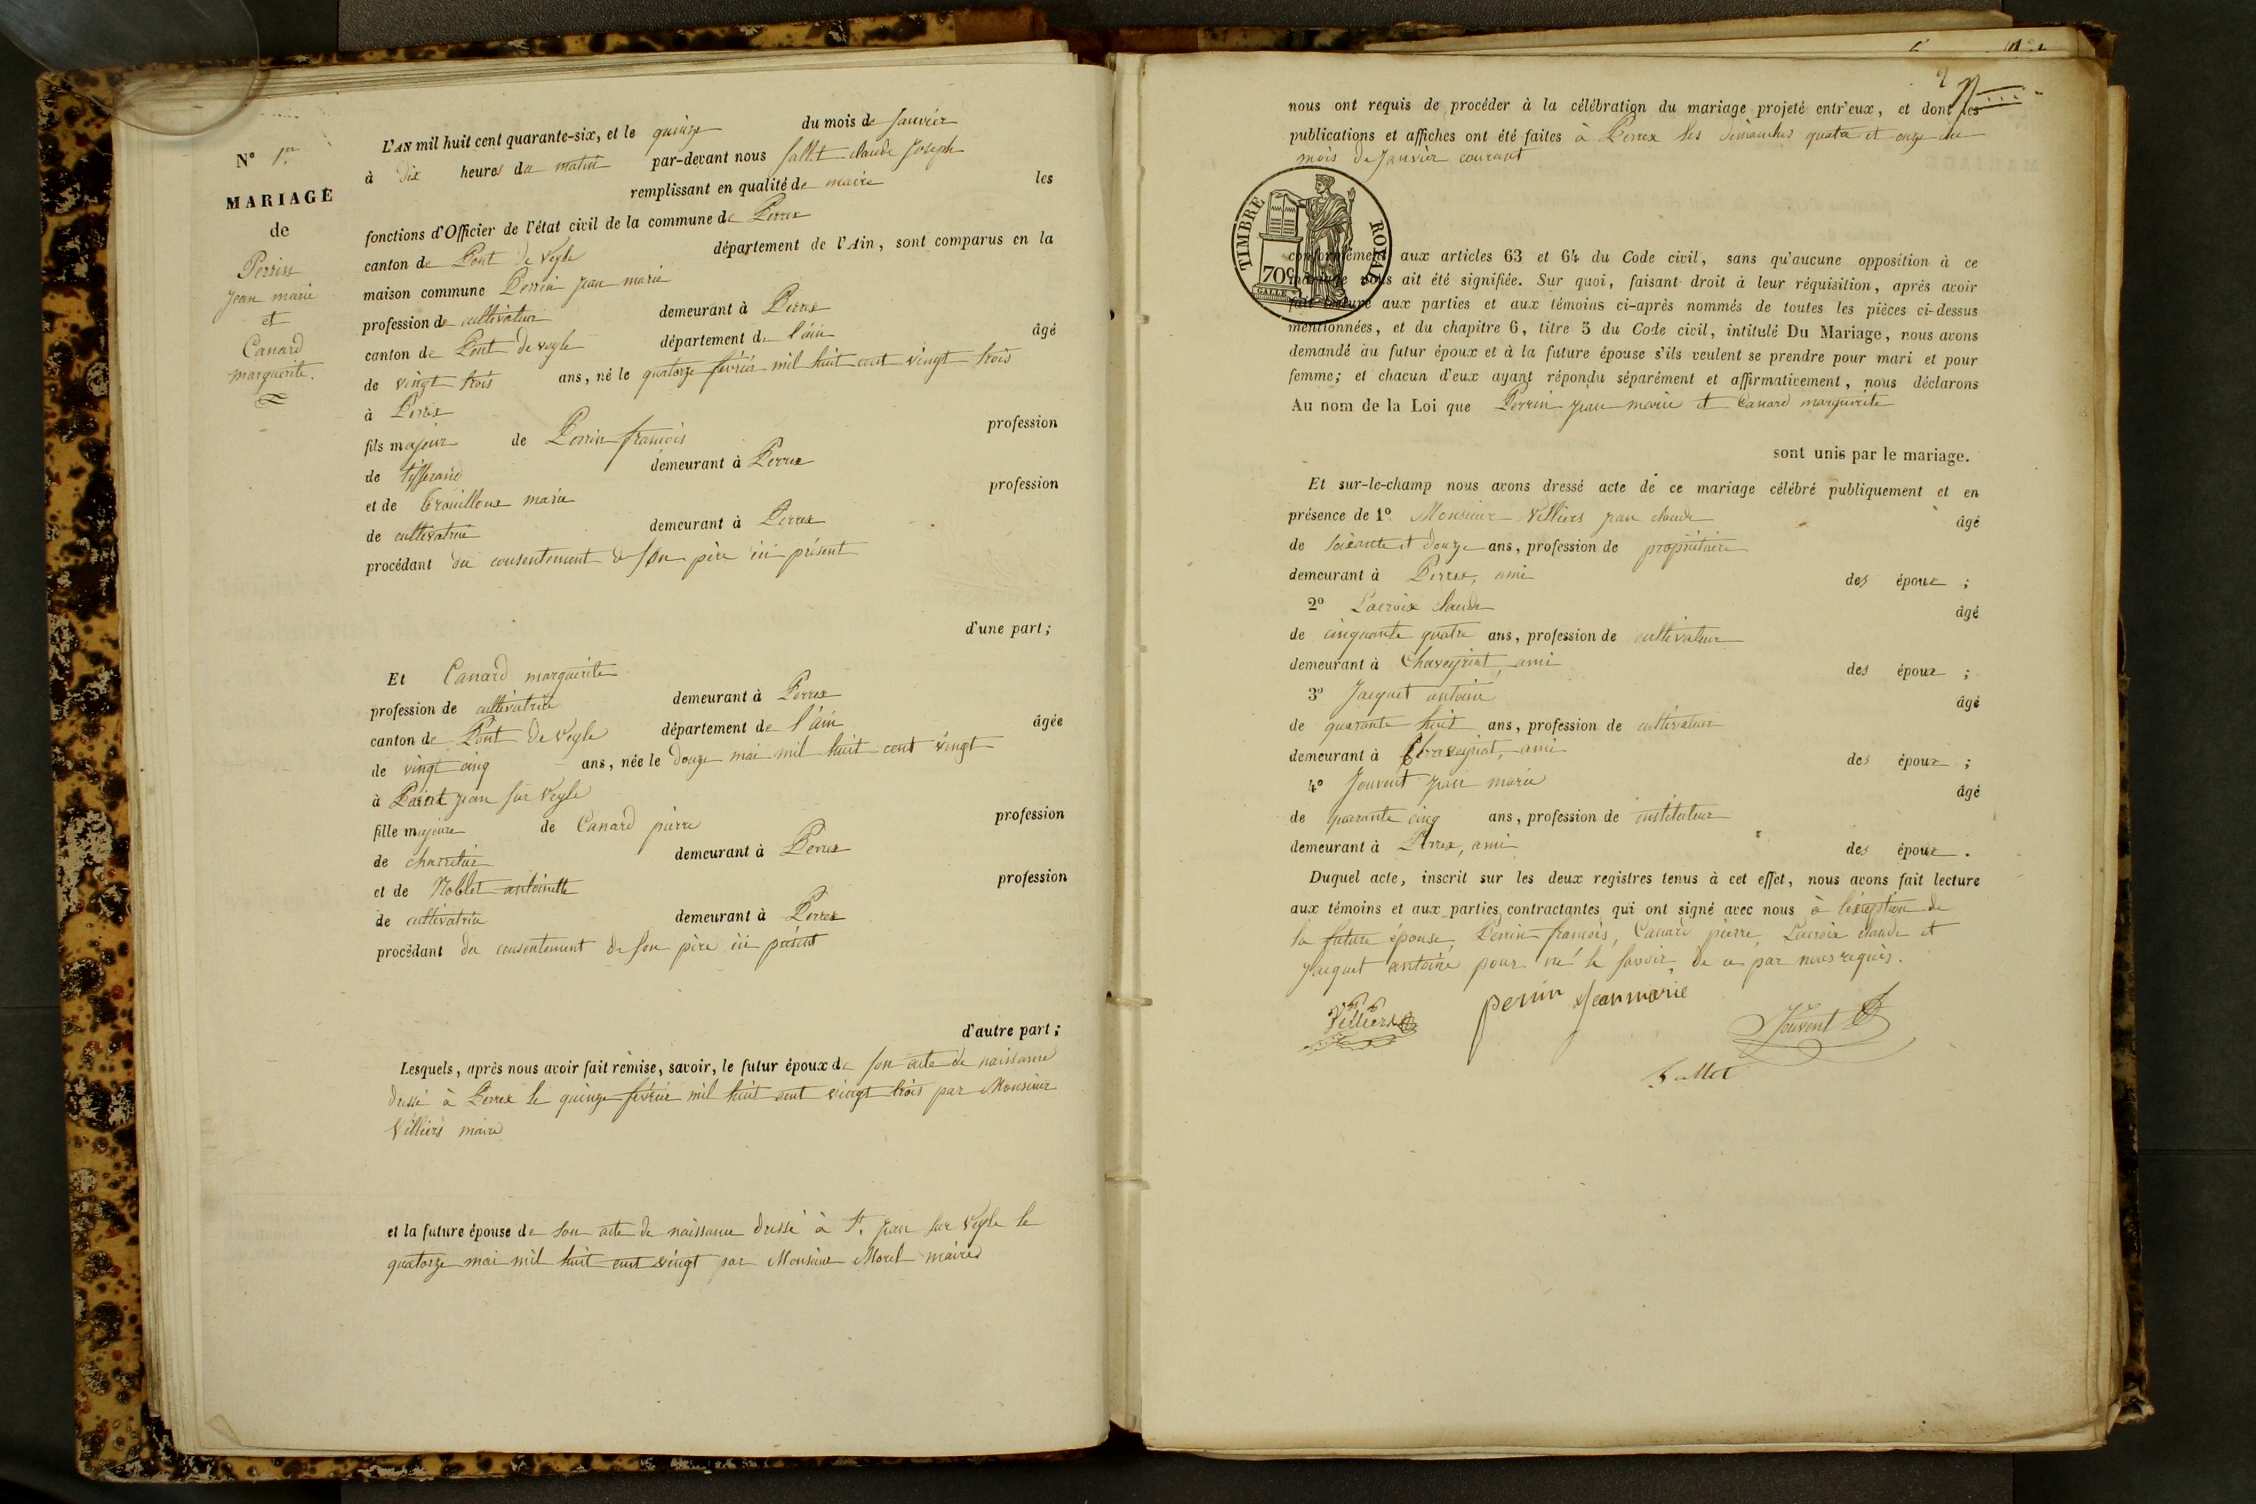 N° 1er
MARIAGE
de
Perrin
Jean marie
et
Canard
marguerite.
L'AN mil huit cent quarante-six, et le quinze du mois de Janvier
à dix heures du matin par-devant nous fallet claude Joseph
remplissant en qualité de maire les
fonctions d'Officier de l'état civil de la commune de Perrex
canton de Pont de Veyle département de l'Ain, sont comparus en la
maison commune Perrin jean marie
profession de cultivateur demeurant à Perrex
canton de Pont de veyle département de l'ain âgé
de vingt trois ans, né le quatorze février mil huit cent vingt trois
à Perrex
fils majeur de Perrin françois profession
de tisserand demeurant à Perrex
et de trouilloux marie profession
de cultivatrice demeurant à Perrex
procédant du consentement de son père ici présent
d'une part;
Et Canard marguerite
profession de cultivatrice demeurant à Perrex
canton de Pont de Veyle département de l'ain âgée
de vingt cinq ans, née le douze mai mil huit cent vingt
à Saint jean sur Veyle
fille majeure de Canard pierre profession
de charretier demeurant à Perrex
et de Noblet antoinette profession
de cultivatrice demeurant à Perrex
procédant du consentement de son père ici présent
d'autre part;
Lesquels, après nous avoir fait remise, savoir, le futur époux de son acte de naissance
dressé à Perrex le quinze février mil huit cent vingt trois par Monsieur
Villiers maire
et la future épouse de son acte de naissance dressé à St. jean sur Veyle le
quatorze mai mil huit cent vingt par Monsieur Morel maire
2
nous ont requis de procéder à la célébration du mariage projeté entr'eux, et dont les
publications et affiches ont été faites à Perrex les dimanches quatre et onze du
mois de Janvier courant
TIMBRE ROYAL
70c
GALLE
conformément aux articles 63 et 64 du Code civil, sans qu'aucune opposition à ce
mariage nous ait été signifiée. Sur quoi, faisant droit à leur réquisition, après avoir
fait lecture aux parties et aux témoins ci-après nommés de toutes les pièces ci-dessus
mentionnées, et du chapitre 6, titre 5 du Code civil, intitulé Du Mariage, nous avons
demandé au futur époux et à la future épouse s'ils veulent se prendre pour mari et pour
femme; et chacun d'eux ayant répondu séparément et affirmativement, nous déclarons
Au nom de la Loi que Perrin jean marie et Canard marguerite
sont unis par le mariage.
Et sur-le-champ nous avons dressé acte de ce mariage célébré publiquement et en
présence de 1° Monsieur Villiers jean claude âgé
de soixante et douze ans, profession de propriétaire
demeurant à Perrex, ami des époux ;
2° Lacroix claude âgé
de cinquante quatre ans, profession de cultivateur
demeurant à Chaveyriat, ami des époux ;
3° Jacquet antoine âgé
de quarante huit ans, profession de cultivateur
demeurant à Chaveyriat, ami des époux ;
4° Jouvent jean marie âgé
de quarante cinq ans, profession de instituteur
demeurant à Perrex, ami des époux .
Duquel acte, inscrit sur les deux registres tenus à cet effet, nous avons fait lecture
aux témoins et aux parties contractantes qui ont signé avec nous à l'exception de
la future épouse, Perrin françois, Canard pierre, Lacroix claude et
Jacquet antoine pour ne le savoir, de ce par nous requis.
Villiers perrin jean marie Jouvent
fallet